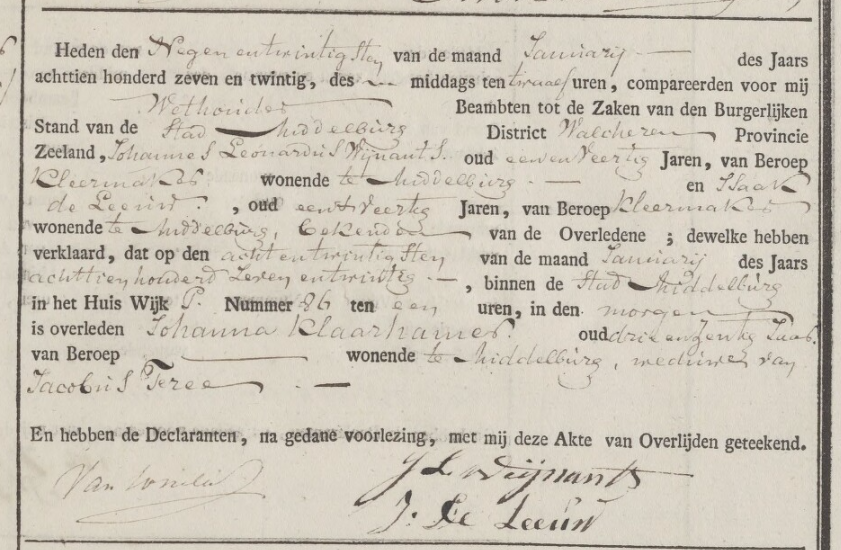 Heden den Negen entwintigsten van de maand Januarij — des Jaars
achttien honderd zeven en twintig, des — middags ten twaalf uren, compareerden voor mij
Wethouder Beambten tot de Zaken van den Burgerlijken
Stand van de Stad Middelburg District Walcheren Provincie
Zeeland, Johannes Leonardus Wijnants. oud eenenveertig Jaren, van Beroep
Kleermaker wonende te Middelburg — en Isaak
de Leeuw. , oud een&veertig Jaren, van Beroep Kleermaker
wonende te Middelburg, bekenden van de Overledene ; dewelke hebben
verklaard, dat op den acht entwintigsten van de maand Januarij des Jaars
achttienhonderd zeven entwintig — , binnen de Stad Middelburg
in het Huis Wijk P. Nummer 86 ten een uren, in den morgen
is overleden Johanna Klaarhamer. oud drie en Jaar.
van Beroep — wonende te Middelburg, weduwe van
Jacobus Feree — . —
En hebben de Declaranten, na gedane voorlezing, met mij deze Akte van Overlijden geteekend.
J L Weijnants
J: de Leeuw